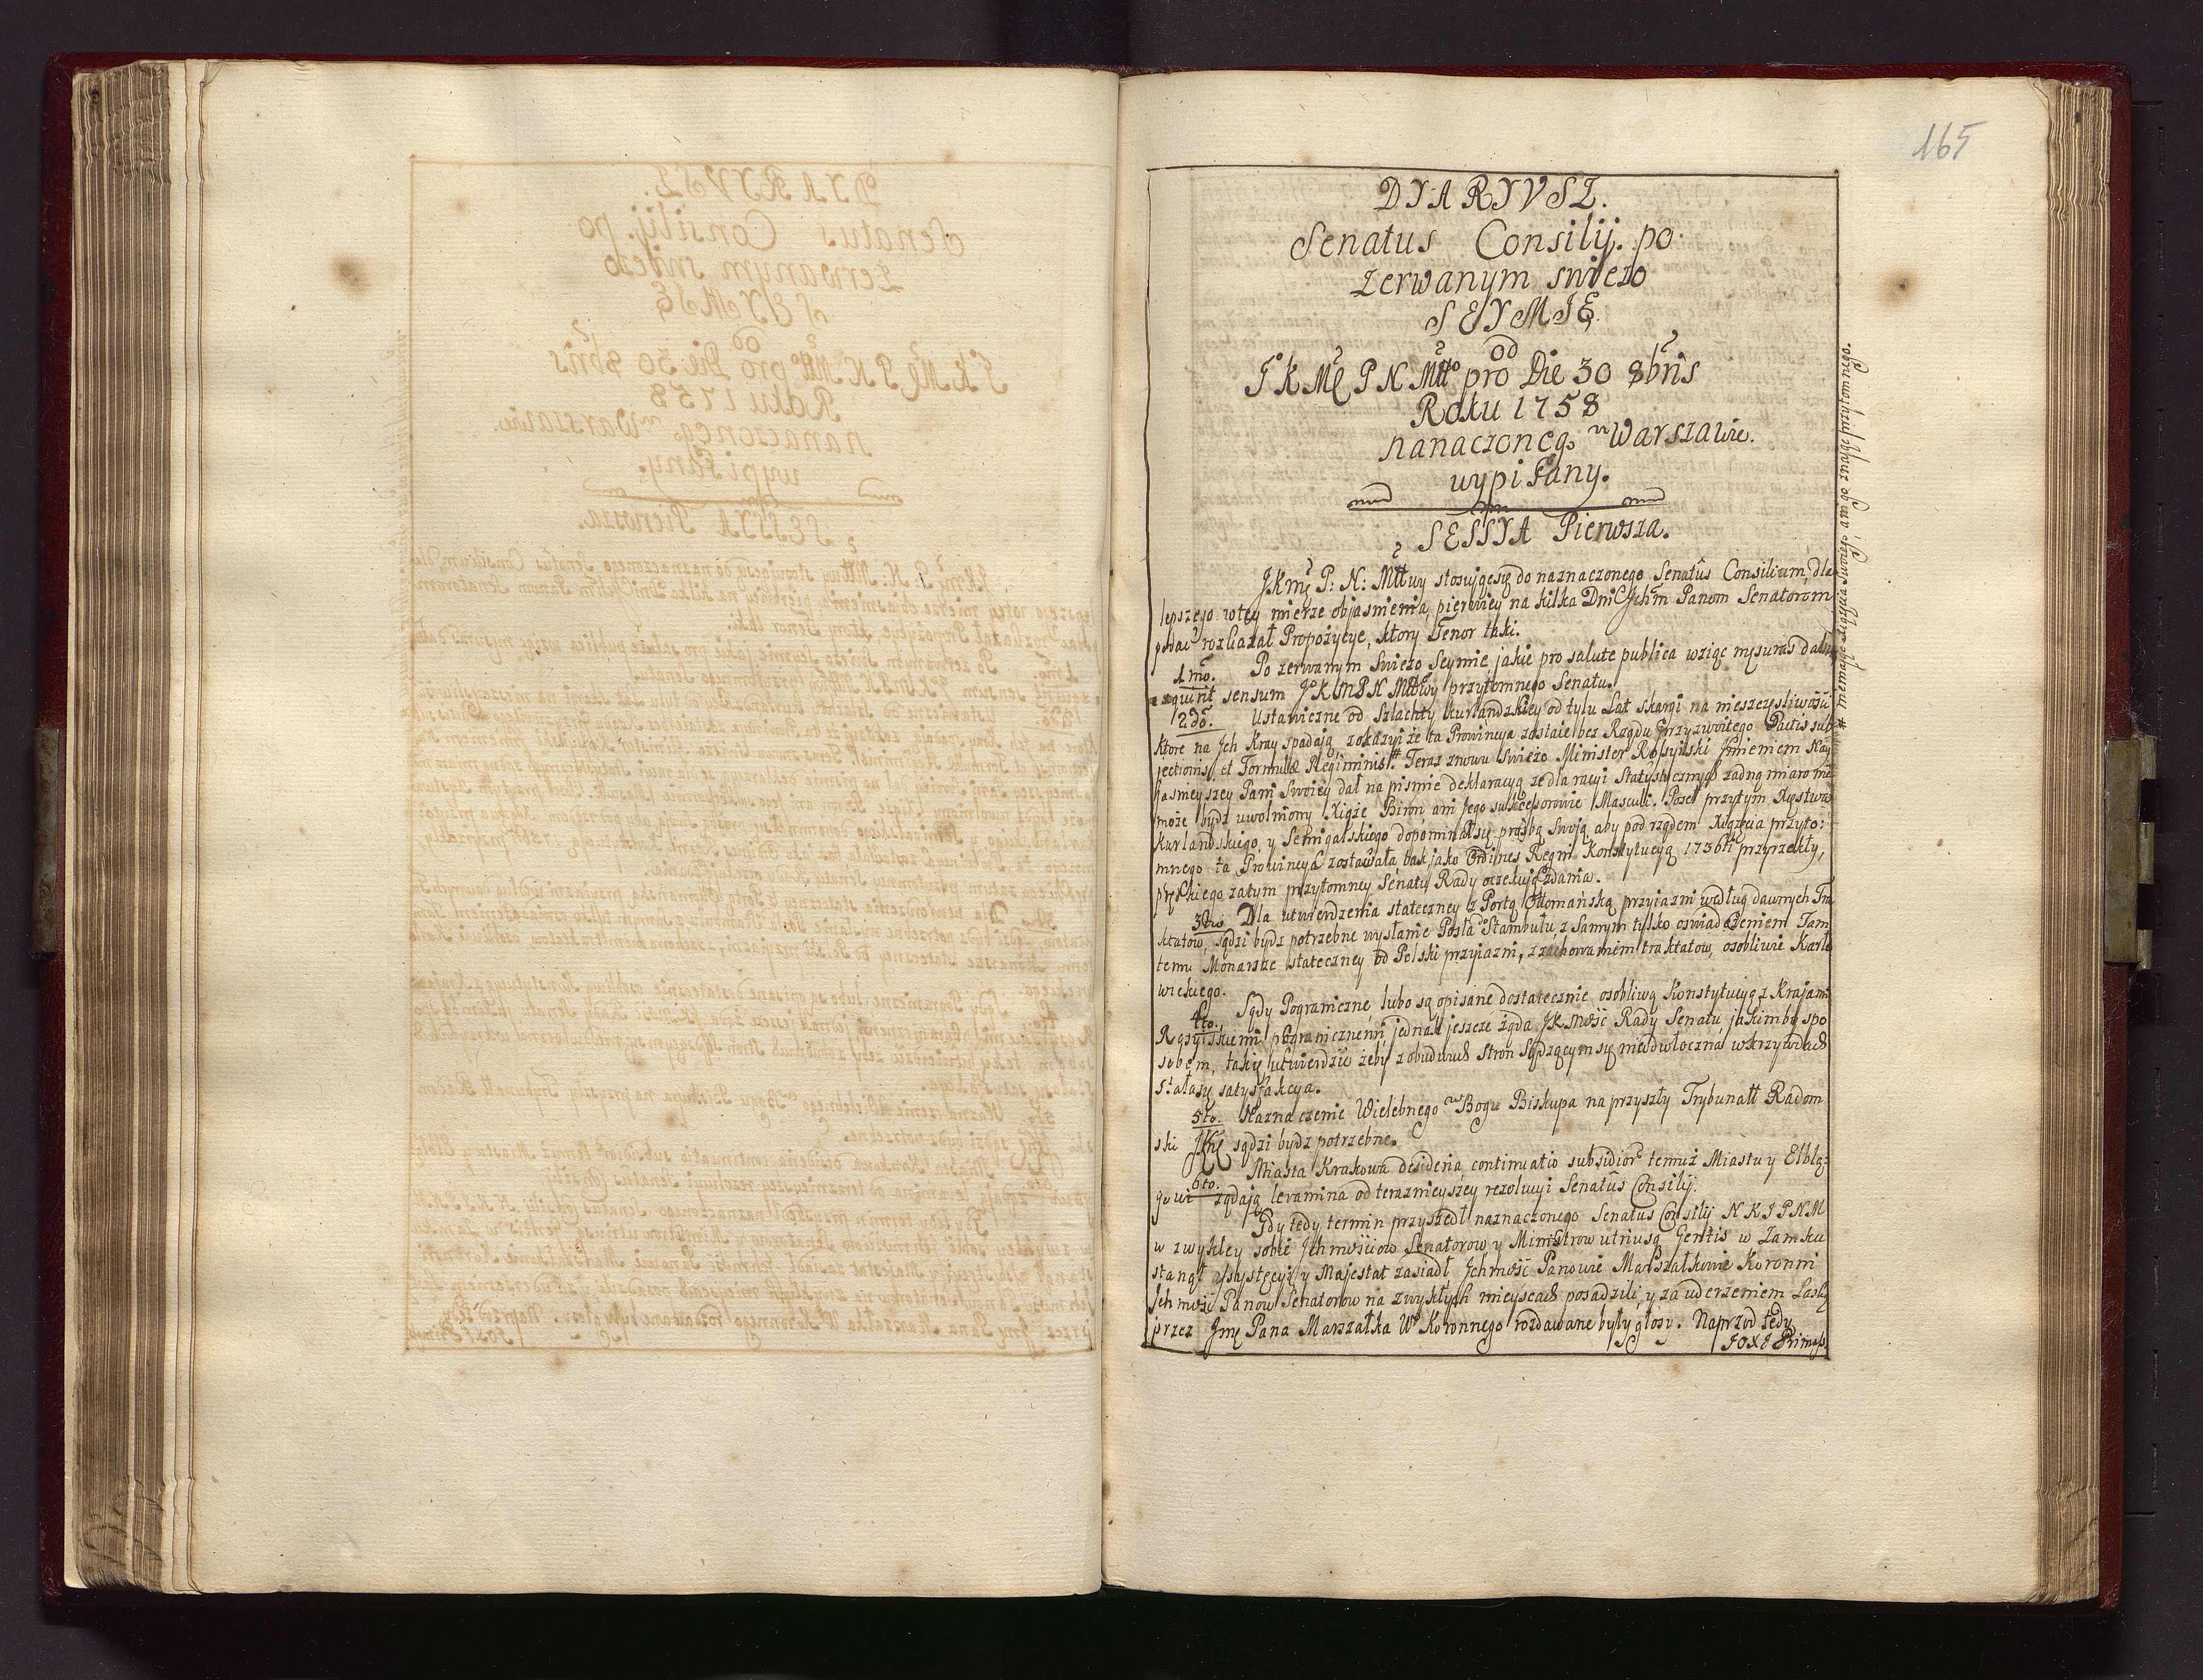 165
DYARYVSZ.
Senatus Consilij. po
zerwanym swiezo
SEYMIE
od
JKMę PN Mtto pro Die 30 8bris
Roku 1758
nanaczoneg. w Warszawie.
wypisany.
SESSYA Pierwsza.
JKmę P: N: Mttwy stosuięcsię do naznaczonego Senatus Consilium, dla
lepszego wtey mierze objasnienia, pierwiey na kilka Dni Ichm Panom Senatorom
podac rozkazał Propozycye, ktory Tenor taki.
1mo. Po zerwanym swiezo Seymie jakie pro salute publica wziąc męsuras dalsze
exquirit sensum JKMPN Mttwy przytomnego Senatu.
2do. Ustawiczne od Szlachty Kurlandzkiey od tylu Lat skargi na nieszczęsliwosci
ktore na Ich Kray spadaią, zokazyi że ta Prowincya zostaie bez Rządu przyzwoitego Pactis sub
jectionis, et Formulæ Regiminis # Teraz znowu swiezo Minister Rossyiski Imieniem Nay
jasnieyszey Pani Swoiey dał na pismie deklaracyą ze dla racyi Statystycznych zadną miarą nie
może bydz uwolniony Xiąże Biron ani Jego sukcesorowie Masculi. Poseł przytym Xięstwa
Kurlandskiego, y Semigalskiego dopominałsię prozbą Swoią aby pod rządem Xiążęcia przyto:
mnego ta Prowincya zostawała tak jako Ordines Regni Konstytucyą 1736tt przyrzekły,
zatym przytomney Senatu Rady oczekuią zdania.
3tio Dla utwierdzenia stateczney z Portą Ottomańską przyiazni według dawnych Tra
ktatow, sądzi bydz potrzebne wysłanie Posła do Stambułu, z Samym tylko oswiadczeniem Tam
temu Monarsze stateczney od Polski przyiazni, z zachowaniem traktatow, osobliwie Karło
wickiego.
4to. Sądy Pograniczne, lubo są opisane dostatecznie osobliwą Konstytucyą z Krajami
Rossyiskiemi pogranicznemi, jednak jeszcze żąda JKMość Rady Senatu, jakimby spo
sobem, takie utwierdzic żeby z obudwuch Stron Sądzącymsię nieodwłoczna w krzywdach
stałasię satysfakcya.
5to. Naznaczenie Wielebnego w Bogu Biskupa na przyszły Trybunatt Radom
ski JKMę sądzi bydz potrzebne.
6to. Miasta Krakowa desideria, continuatio subsidior temuż Miastu y Elblą:
gowi żądaią levamina od terazniejszey rezolucyi Senatus Consilij.
Gdy tedy termin przyszedł naznaczonego Senatus Consilij NKJPNM
w zwykłey sobie Ichmosciow Senatorow y Ministrow utriusq Gentis w Zamku
stanął Assystęcyi, y Majestat zasiadł, Ichmość Panowie Marszałkowie Koronni
Ichmość Panow Senatorow na zwykłych mieyscach posadzili, y za uderzeniem Laski
przez Jmę Pana Marszałka Wo Koronnego rozdawane były głosy. Naprzod tedy
JOXJ Primas
# niemaiąc Xiążęcia swoiego ani go znayduiącsię przytomnego.